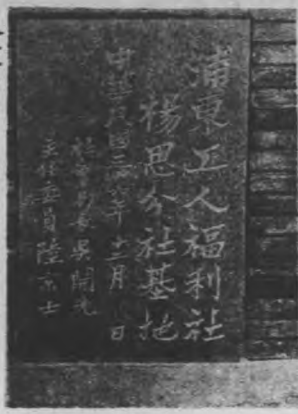 浦東工人福利社
楊思分社基地
中華民國三十六年十二月 日
社會局長吳開先
主任委員陸京士